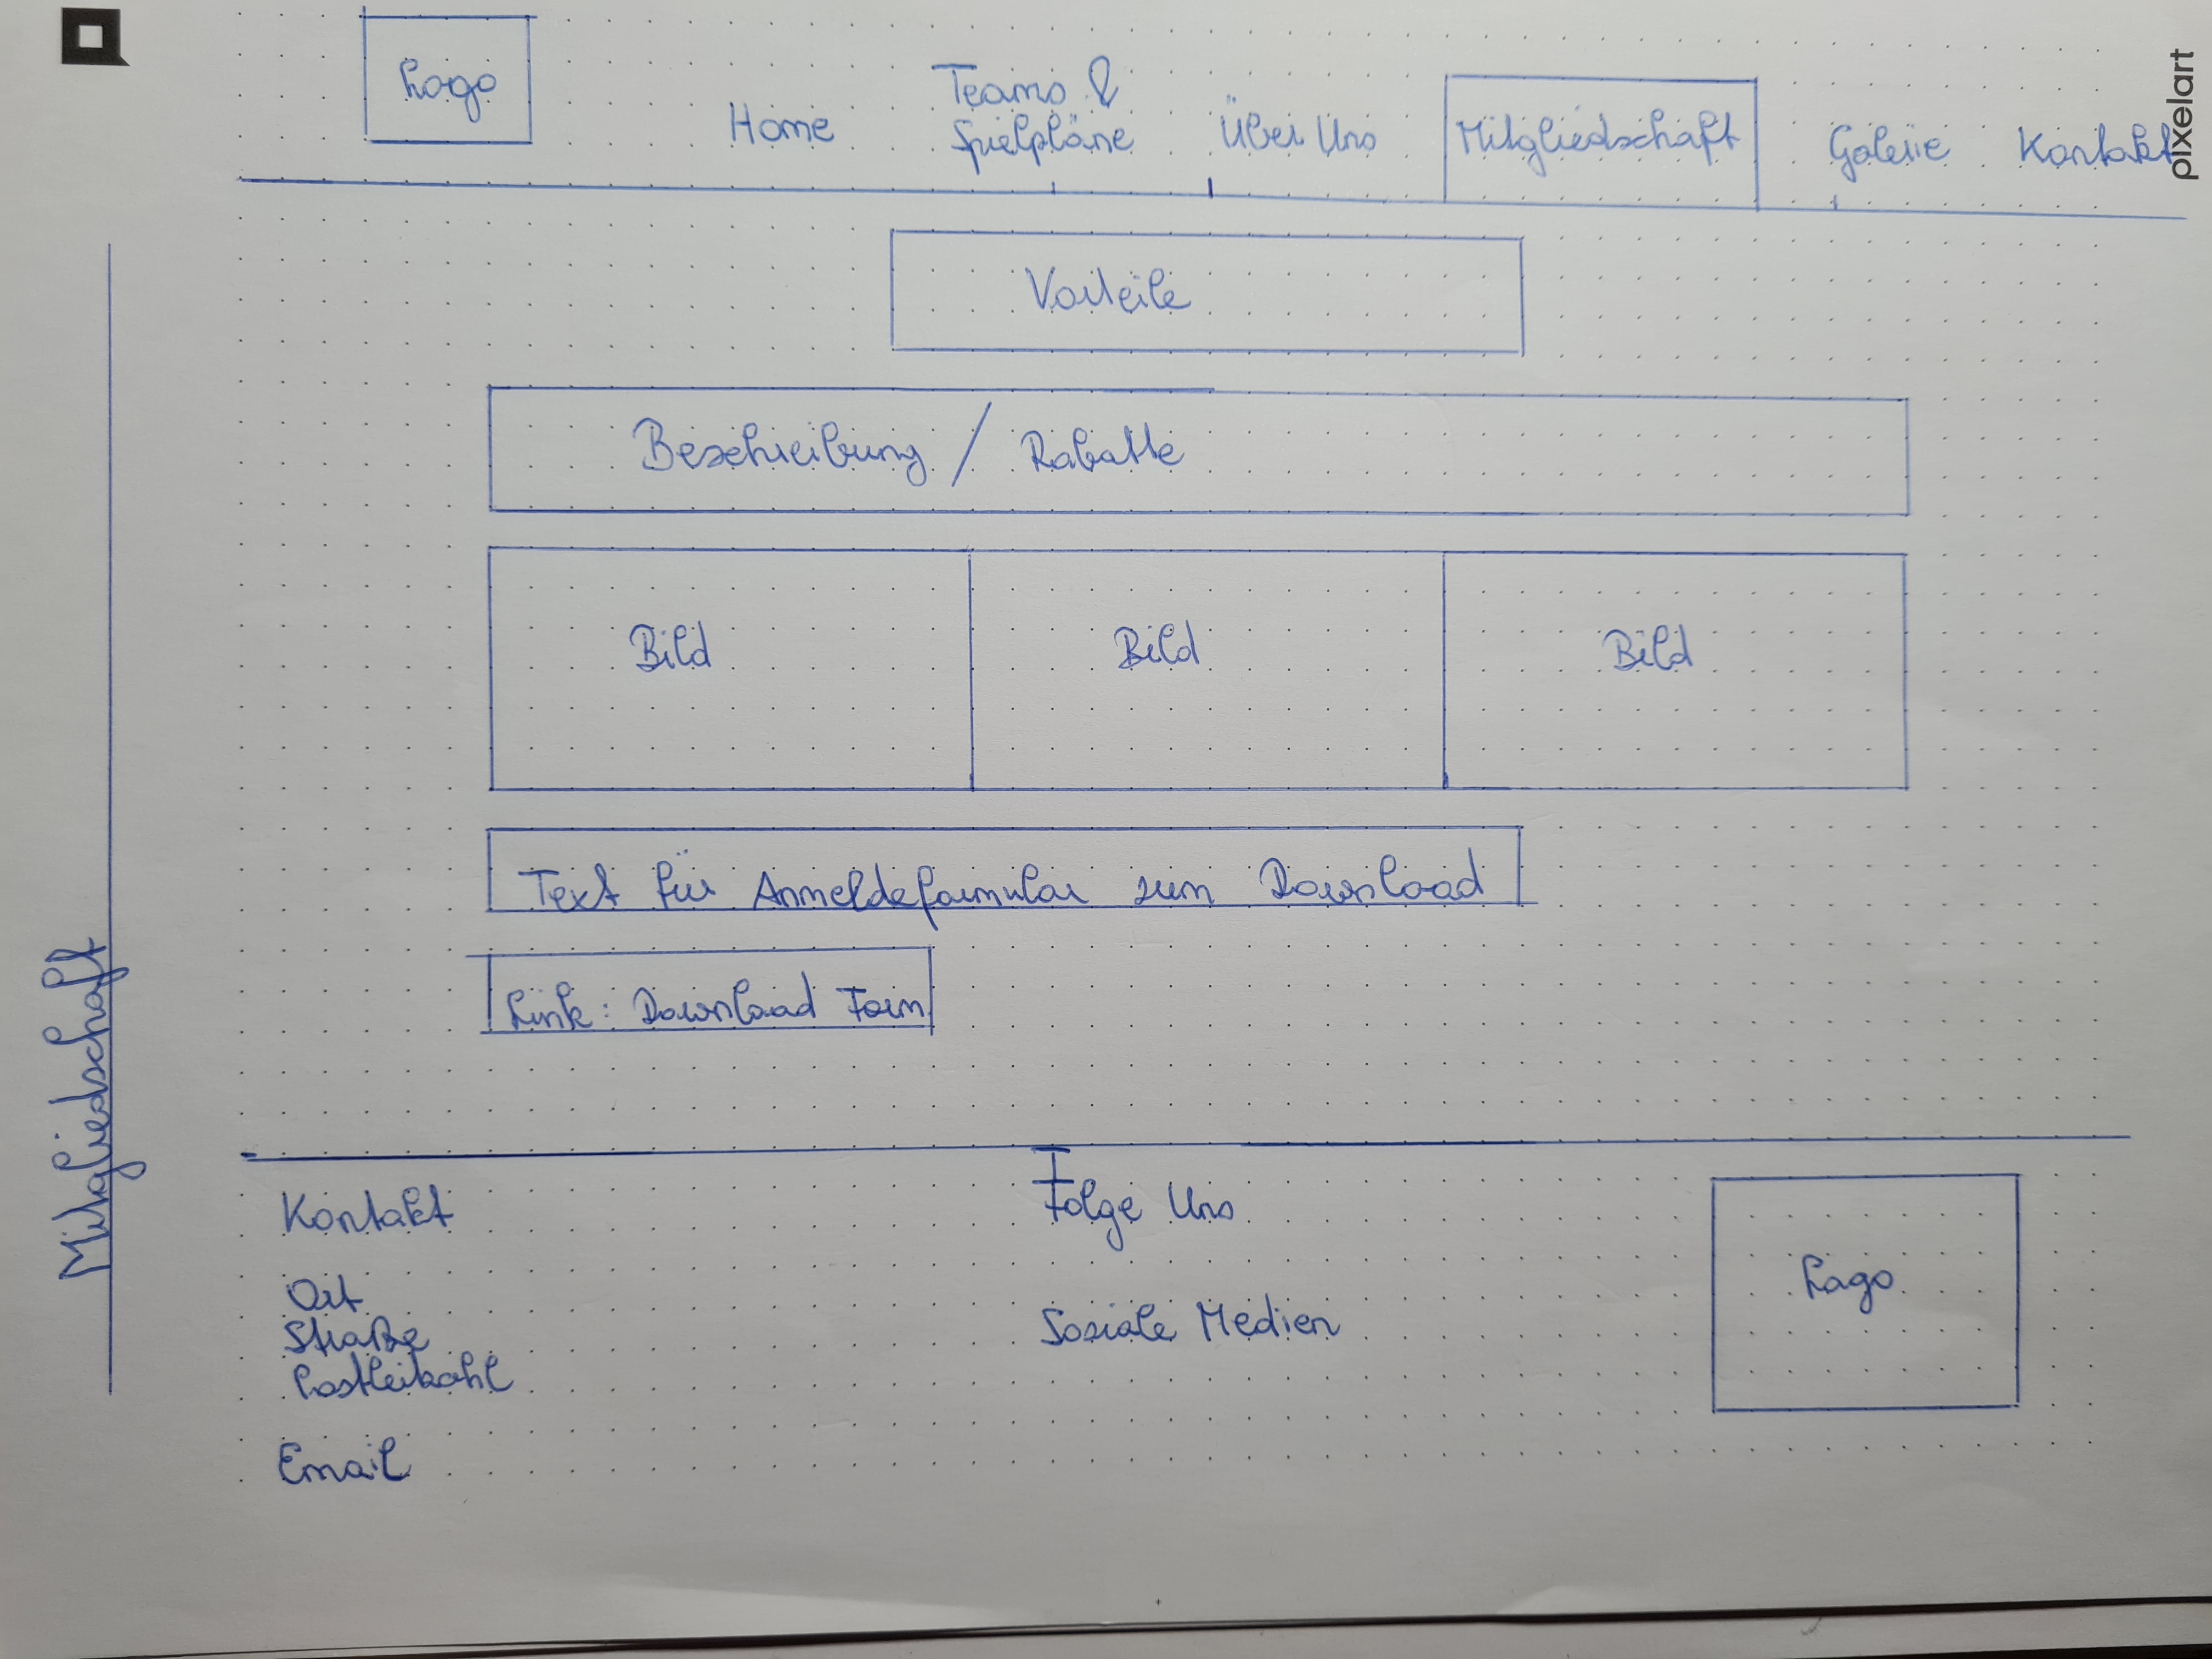 Logo
Home
Teams &
Spielpläne
Über Uns
Mitgliedschaft
Galerie
Kontakt
pixelart
Vorteile
Beschreibung / Rabatte
Bild
Bild
Bild
Text für Anmeldeformular zum Download
Link: Download Form
Mitgliedschaft
Kontakt
Ort
Straße
Postleitzahl
Email
Folge Uns
Soziale Medien
Logo